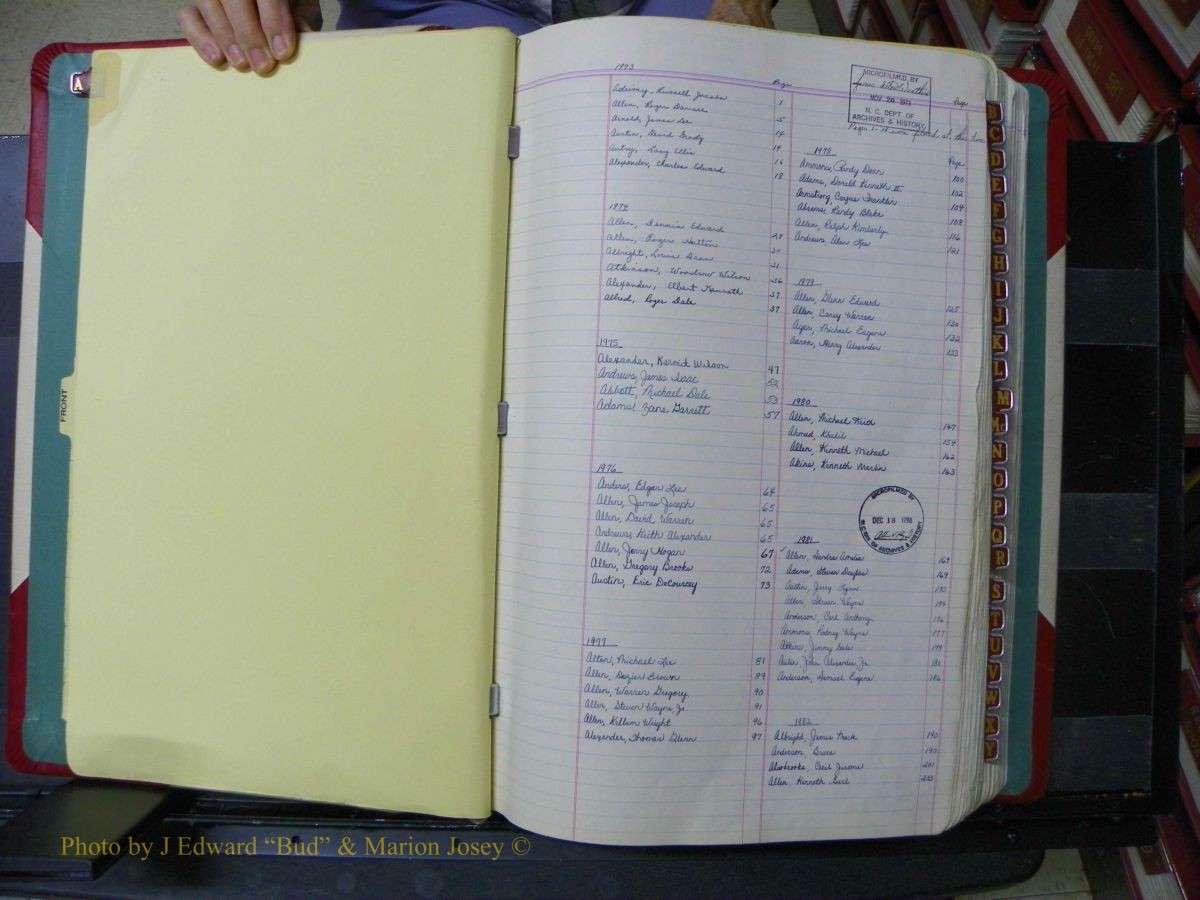 A
FRONT
1973
Page
Allen, Roger Darrell 1
Arnold, James Lee 5
Austin, David Grady 14
Autry, Lacy Ellis 16
Alexander, Charles Edward 18
1974
Allen, Dennis Edward
Allen, Roger Hutton
Albright, Louis Dean 21
Atkinson, Woodrow Wilson 36
Alexander, Elbert Kenneth 37
Allred, Roger Dale 37
1975
Alexander, Kermit Wilson 47
Andrews, James Isaac 52
Abbott, Michael Dale 53
Adams, Zane Garrett 57
1976
Anders, Edgar Lee 64
Allen, James Joseph 65
Allen, David Warren 65
Andrews, Keith Alexander 65
Allen, Jerry Hogan 67
Allen, Gregory Brooks 72
Austin, Eric DeCourcey 73
1977
Allen, Michael Lee 81
Allen, Dozier Brown 89
Allen, Warren Gregory 90
Allen, Steven Wayne, Jr. 91
Allen, Killum Wright 96
Alexander, Thomas Glenn 97
MICROFILMED BY
NOV 20 1973
N. C. DEPT OF
ARCHIVES & HISTORY
Page
1978
Page
Ammons, Randy Dean 100
Adams, Donald Kenneth II 102
Armstrong, Franklin 104
Abrams, Randy Blake 108
Allen, Ralph Kimberly 116
Andrews, Alan Lee 121
1979
Allen, Glenn Edward 125
Allen, Carey Warren 130
Ayer, Michael Eugene 132
Aaron, Henry Alexander 133
1980
Allen, Michael Keith 147
Ahmad, Khalil 154
Allen, Kenneth Michael 162
Akins, Kenneth Martin 163
MICROFILMED BY
DEC 18 1990
N.C. DIV. OF ARCHIVES & HISTORY
1981
Allen, Sandra Amelia 164
Adams, Steven Douglas 169
Austin, Jerry Lynn
Allen, Steven Wayne
Anderson, Carl Anthony 176
Ammons, Rodney Wayne 177
Atkins, Jimmy Gale 179
John Alexander, Jr.
Anderson, Samuel Eugene 186
1982
Albright, James Frank 190
Anderson, Bruce 190
Cecil Jerome 201
Allen, Kenneth Earl 203
B
C
D
E
F
G
H
I
J
K
L
M
Mc
N
O
P
Q
R
S
T
U
V
W
X
Y
581
Photo by J Edward “Bud” & Marion Josey ©